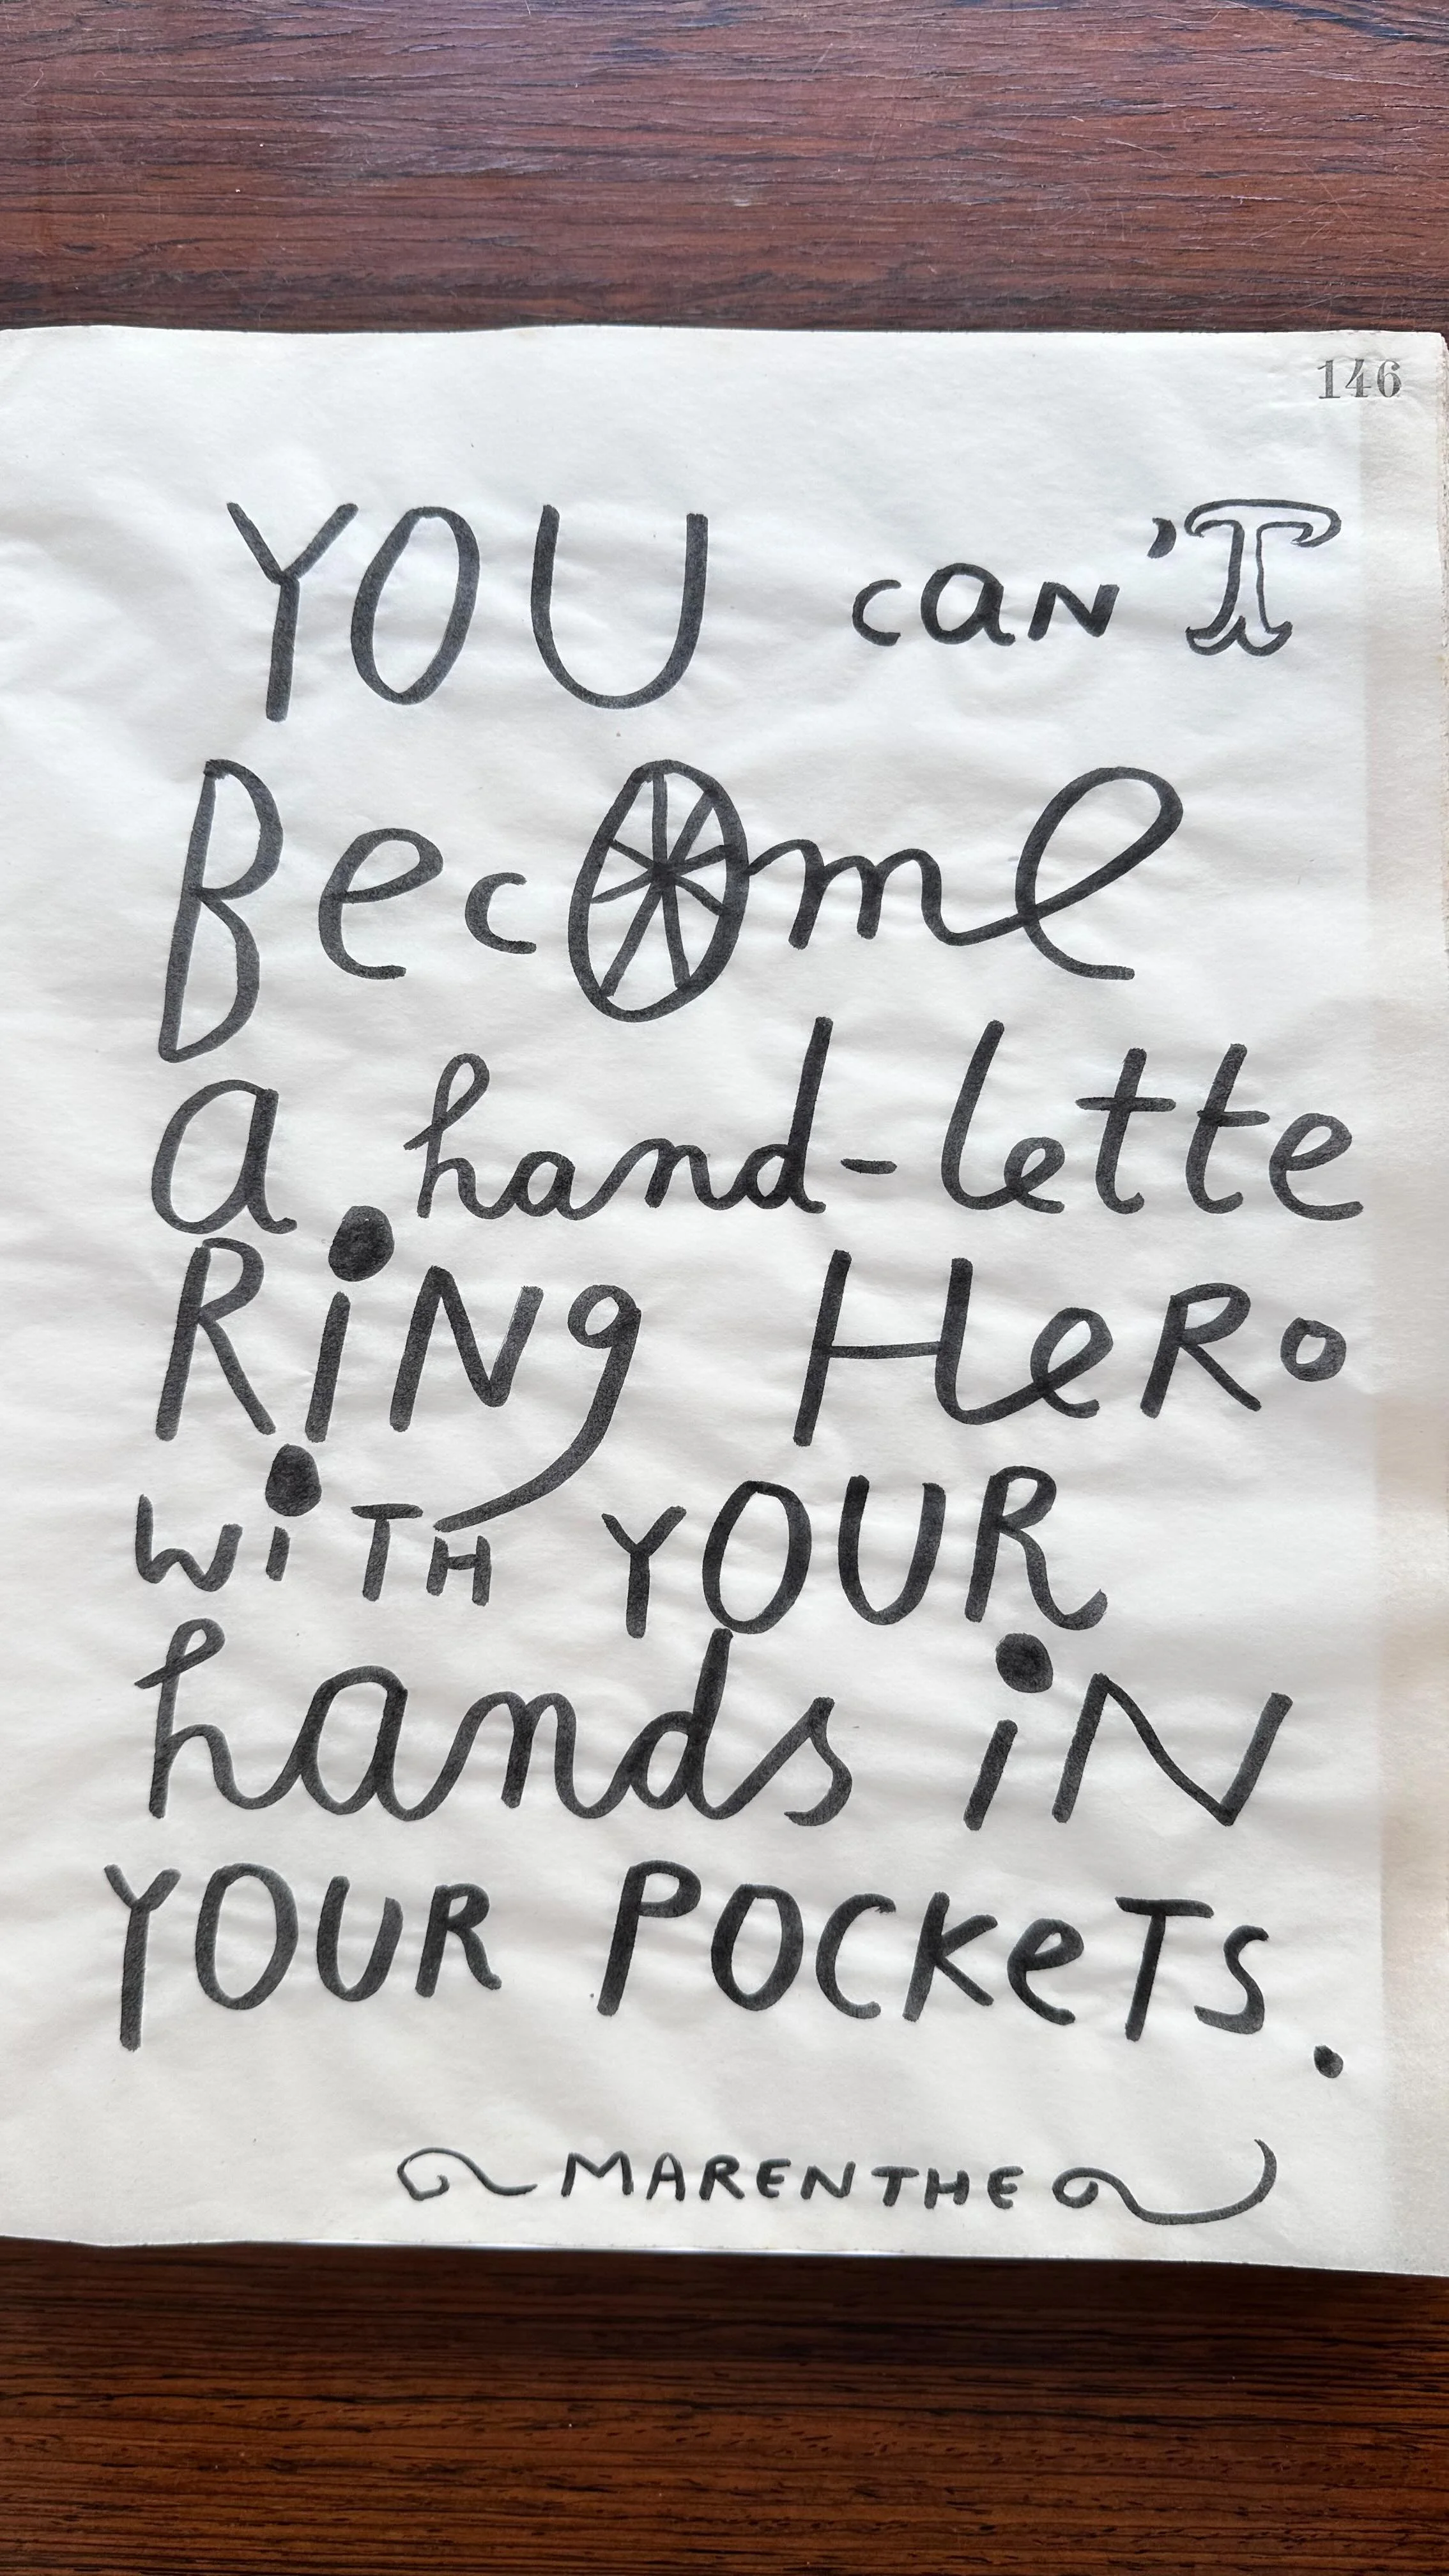 146
YOU can'T
Become
a hand-lette
RiNg HeRo
WiTH YOUR
hands iN
YOUR POCKeTS.
MARENTHE